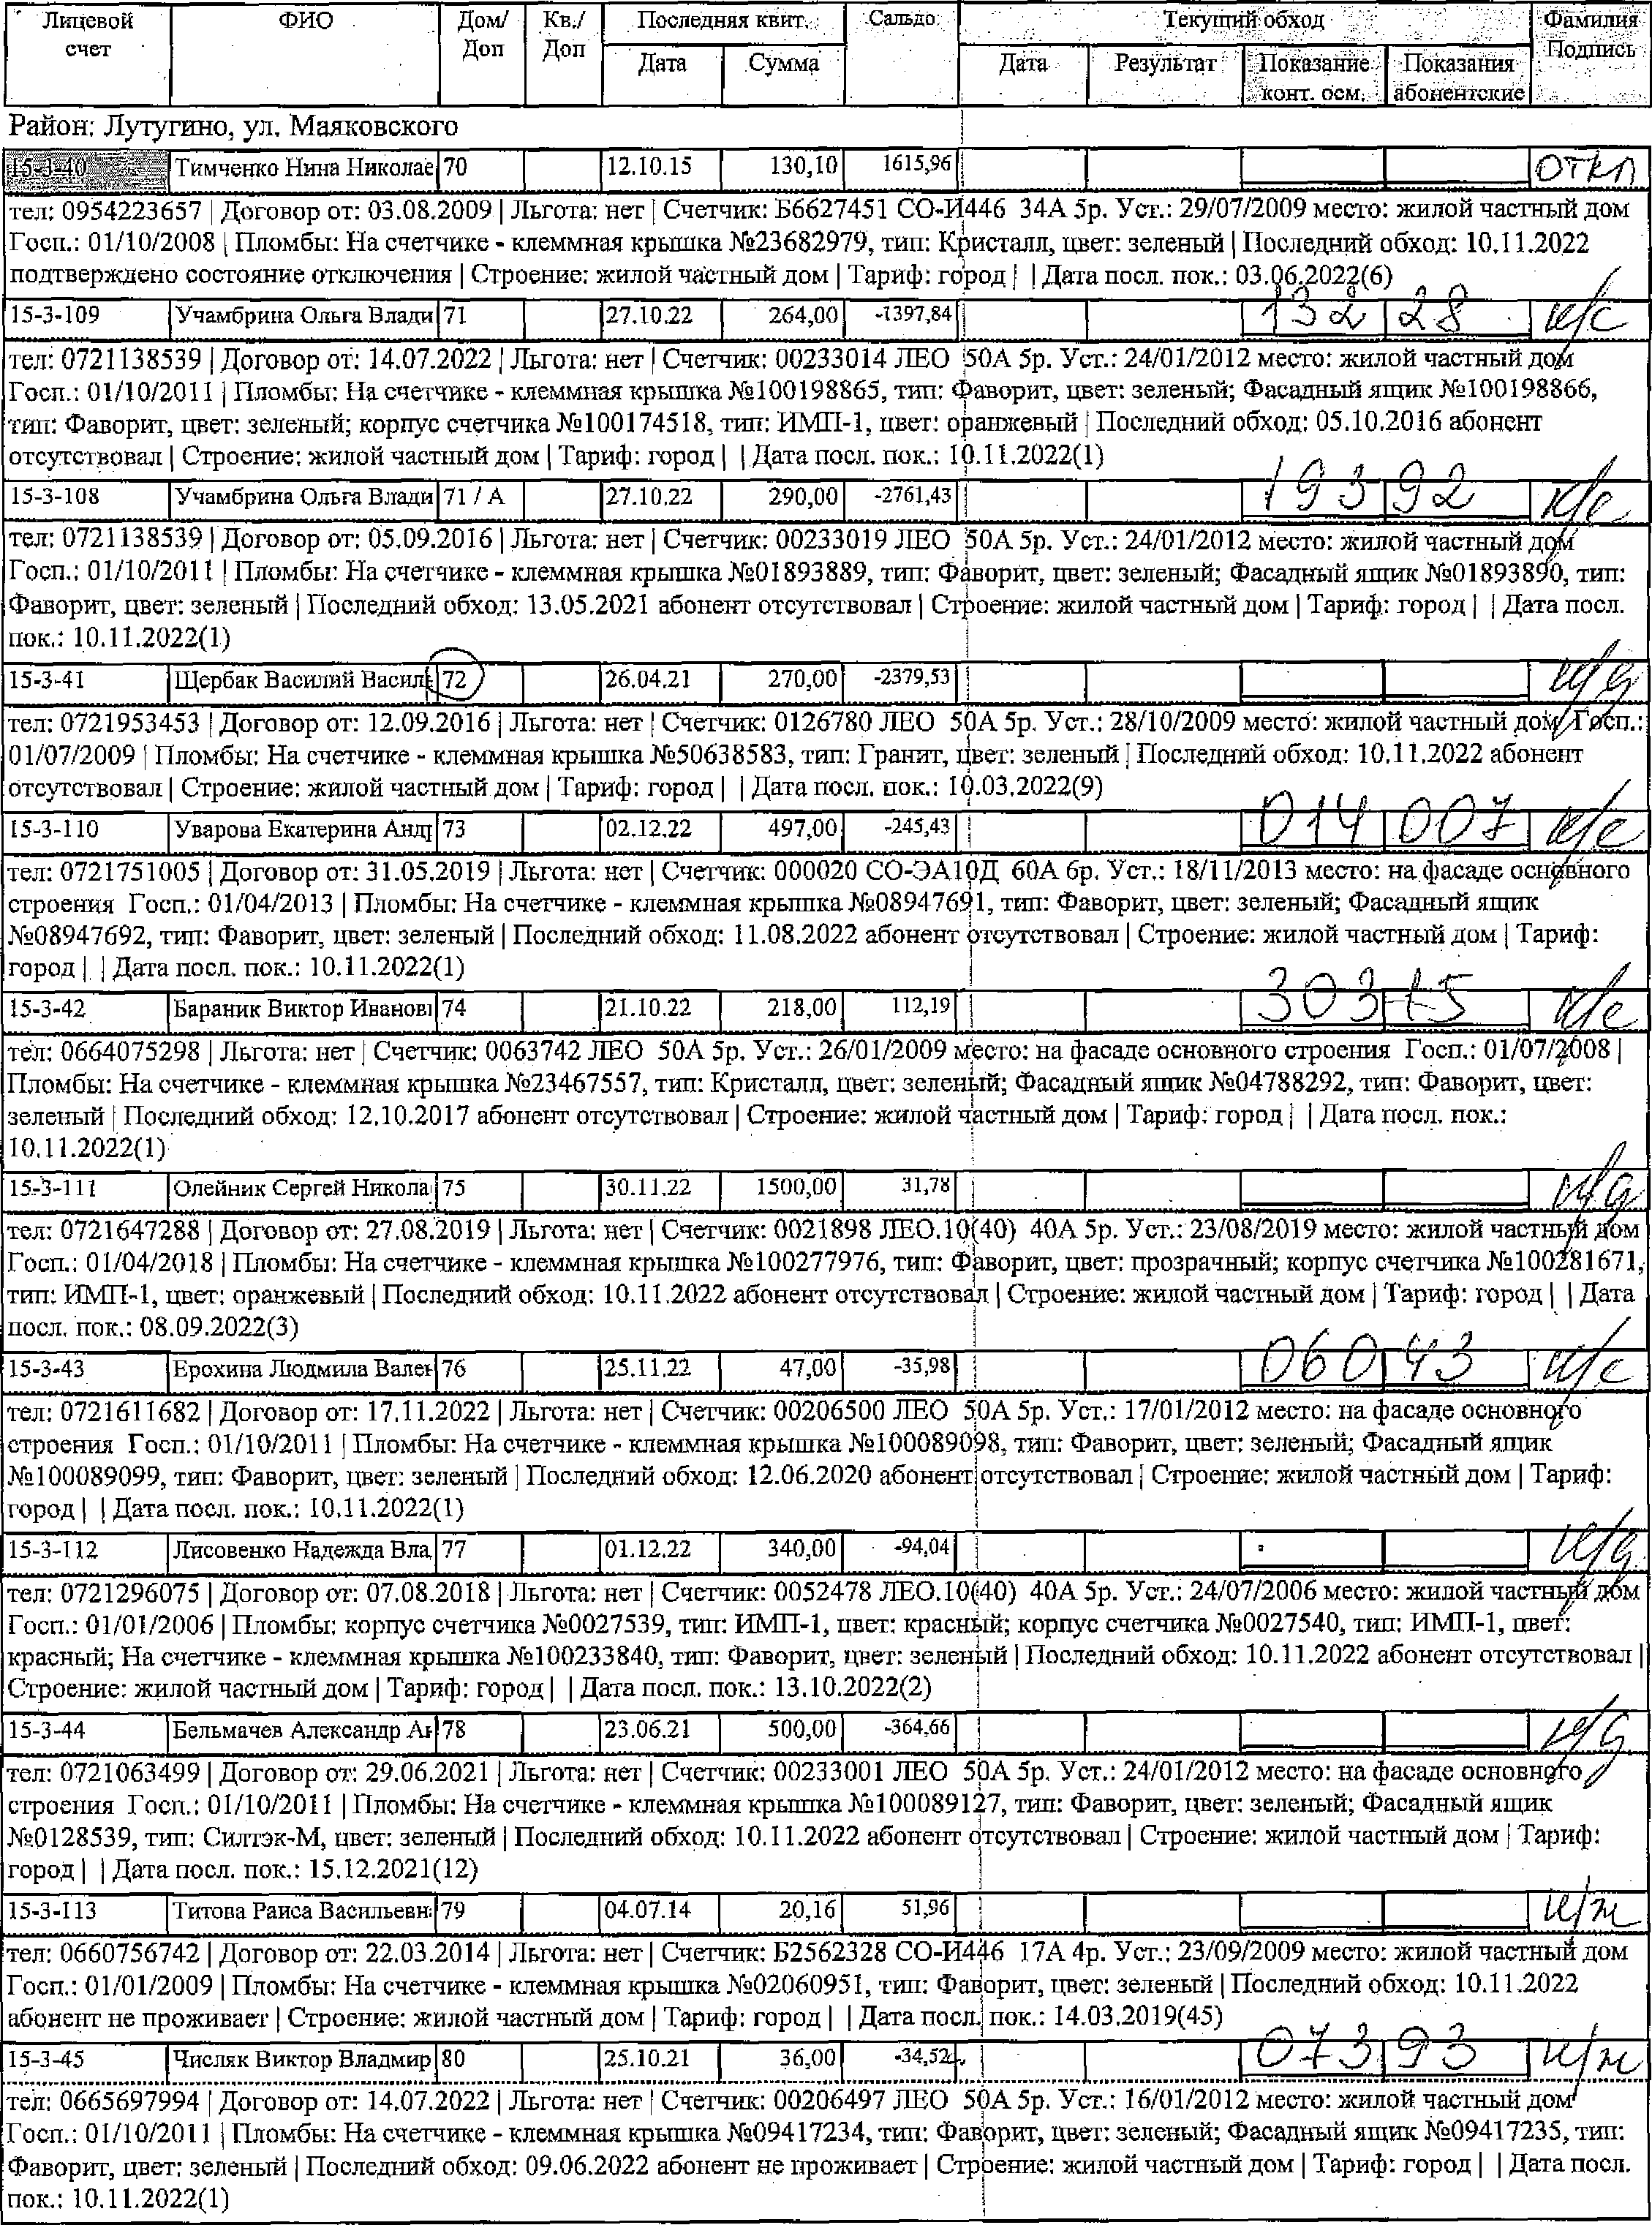 Лицевой счет | ФИО | Дом/ Доп | Кв./ Доп | Последняя квит. | Сальдо | Текущий обход | Фамилия Подпись
Дата | Сумма | Дата | Результат | Показание конт. осм. | Показания абонентские
Район: Лутугино, ул. Маяковского
15-3-40 | Тимченко Нина Николае | 70 | 12.10.15 | 130,10 | 1615,96 | откл
тел: 0954223657 | Договор от: 03.08.2009 | Льгота: нет | Счетчик: Б6627451 СО-И446 34А 5р. Уст.: 29/07/2009 место: жилой частный дом
Госп.: 01/10/2008 | Пломбы: На счетчике - клеммная крышка №23682979, тип: Кристалл, цвет: зеленый | Последний обход: 10.11.2022
подтверждено состояние отключения | Строение: жилой частный дом | Тариф: город | | Дата посл. пок.: 03.06.2022(6)
15-3-109 | Учамбрина Ольга Влади | 71 | 27.10.22 | 264,00 | -1397,84 | 13228 | к/с
тел: 0721138539 | Договор от: 14.07.2022 | Льгота: нет | Счетчик: 00233014 ЛЕО 50А 5р. Уст.: 24/01/2012 место: жилой частный дом
Госп.: 01/10/2011 | Пломбы: На счетчике - клеммная крышка №100198865, тип: Фаворит, цвет: зеленый; Фасадный ящик №100198866,
тип: Фаворит, цвет: зеленый; корпус счетчика №100174518, тип: ИМП-1, цвет: оранжевый | Последний обход: 05.10.2016 абонент
отсутствовал | Строение: жилой частный дом | Тариф: город | | Дата посл. пок.: 10.11.2022(1)
15-3-108 | Учамбрина Ольга Влади | 71 / А | 27.10.22 | 290,00 | -2761,43 | 19392 | к/с
тел: 0721138539 | Договор от: 05.09.2016 | Льгота: нет | Счетчик: 00233019 ЛЕО 50А 5р. Уст.: 24/01/2012 место: жилой частный дом
Госп.: 01/10/2011 | Пломбы: На счетчике - клеммная крышка №01893889, тип: Фаворит, цвет: зеленый; Фасадный ящик №01893890, тип:
Фаворит, цвет: зеленый | Последний обход: 13.05.2021 абонент отсутствовал | Строение: жилой частный дом | Тариф: город | | Дата посл.
пок.: 10.11.2022(1)
15-3-41 | Щербак Василий Васил | 72 | 26.04.21 | 270,00 | -2379,53 | н/д
тел: 0721953453 | Договор от: 12.09.2016 | Льгота: нет | Счетчик: 0126780 ЛЕО 50А 5р. Уст.: 28/10/2009 место: жилой частный дом Госп.:
01/07/2009 | Пломбы: На счетчике - клеммная крышка №50638583, тип: Гранит, цвет: зеленый | Последний обход: 10.11.2022 абонент
отсутствовал | Строение: жилой частный дом | Тариф: город | | Дата посл. пок.: 10.03.2022(9)
15-3-110 | Уварова Екатерина Анд | 73 | 02.12.22 | 497,00 | -245,43 | 014007 | к/с
тел: 0721751005 | Договор от: 31.05.2019 | Льгота: нет | Счетчик: 000020 СО-ЭА10Д 60А 6р. Уст.: 18/11/2013 место: на фасаде основного
строения Госп.: 01/04/2013 | Пломбы: На счетчике - клеммная крышка №08947691, тип: Фаворит, цвет: зеленый; Фасадный ящик
№08947692, тип: Фаворит, цвет: зеленый | Последний обход: 11.08.2022 абонент отсутствовал | Строение: жилой частный дом | Тариф:
город | | Дата посл. пок.: 10.11.2022(1)
15-3-42 | Бараник Виктор Иванов | 74 | 21.10.22 | 218,00 | 112,19 | 30315 | к/с
тел: 0664075298 | Льгота: нет | Счетчик: 0063742 ЛЕО 50А 5р. Уст.: 26/01/2009 место: на фасаде основного строения Госп.: 01/07/2008 |
Пломбы: На счетчике - клеммная крышка №23467557, тип: Кристалл, цвет: зеленый; Фасадный ящик №04788292, тип: Фаворит, цвет:
зеленый | Последний обход: 12.10.2017 абонент отсутствовал | Строение: жилой частный дом | Тариф: город | | Дата посл. пок.:
10.11.2022(1)
15-3-111 | Олейник Сергей Никола | 75 | 30.11.22 | 1500,00 | 31,78 | н/д
тел: 0721647288 | Договор от: 27.08.2019 | Льгота: нет | Счетчик: 0021898 ЛЕО.10(40) 40А 5р. Уст.: 23/08/2019 место: жилой частный дом
Госп.: 01/04/2018 | Пломбы: На счетчике - клеммная крышка №100277976, тип: Фаворит, цвет: прозрачный; корпус счетчика №100281671,
тип: ИМП-1, цвет: оранжевый | Последний обход: 10.11.2022 абонент отсутствовал | Строение: жилой частный дом | Тариф: город | | Дата
посл. пок.: 08.09.2022(3)
15-3-43 | Ерохина Людмила Вален | 76 | 25.11.22 | 47,00 | -35,98 | 06043 | к/с
тел: 0721611682 | Договор от: 17.11.2022 | Льгота: нет | Счетчик: 00206500 ЛЕО 50А 5р. Уст.: 17/01/2012 место: на фасаде основного
строения Госп.: 01/10/2011 | Пломбы: На счетчике - клеммная крышка №100089098, тип: Фаворит, цвет: зеленый; Фасадный ящик
№100089099, тип: Фаворит, цвет: зеленый | Последний обход: 12.06.2020 абонент отсутствовал | Строение: жилой частный дом | Тариф:
город | | Дата посл. пок.: 10.11.2022(1)
15-3-112 | Лисовенко Надежда Вла | 77 | 01.12.22 | 340,00 | -94,04 | н/д
тел: 0721296075 | Договор от: 07.08.2018 | Льгота: нет | Счетчик: 0052478 ЛЕО.10(40) 40А 5р. Уст.: 24/07/2006 место: жилой частный дом
Госп.: 01/01/2006 | Пломбы: корпус счетчика №0027539, тип: ИМП-1, цвет: красный; корпус счетчика №0027540, тип: ИМП-1, цвет:
красный; На счетчике - клеммная крышка №100233840, тип: Фаворит, цвет: зеленый | Последний обход: 10.11.2022 абонент отсутствовал |
Строение: жилой частный дом | Тариф: город | | Дата посл. пок.: 13.10.2022(2)
15-3-44 | Бельмачев Александр Ан | 78 | 23.06.21 | 500,00 | -364,66 | н/д
тел: 0721063499 | Договор от: 29.06.2021 | Льгота: нет | Счетчик: 00233001 ЛЕО 50А 5р. Уст.: 24/01/2012 место: на фасаде основного
строения Госп.: 01/10/2011 | Пломбы: На счетчике - клеммная крышка №100089127, тип: Фаворит, цвет: зеленый; Фасадный ящик
№0128539, тип: Силтэк-М, цвет: зеленый | Последний обход: 10.11.2022 абонент отсутствовал | Строение: жилой частный дом | Тариф:
город | | Дата посл. пок.: 15.12.2021(12)
15-3-113 | Титова Раиса Васильевн | 79 | 04.07.14 | 20,16 | 51,96 | н/ж
тел: 0660756742 | Договор от: 22.03.2014 | Льгота: нет | Счетчик: Б2562328 СО-И446 17А 4р. Уст.: 23/09/2009 место: жилой частный дом
Госп.: 01/01/2009 | Пломбы: На счетчике - клеммная крышка №02060951, тип: Фаворит, цвет: зеленый | Последний обход: 10.11.2022
абонент не проживает | Строение: жилой частный дом | Тариф: город | | Дата посл. пок.: 14.03.2019(45)
15-3-45 | Числяк Виктор Владмир | 80 | 25.10.21 | 36,00 | -34,52 | 07393 | н/ж
тел: 0665697994 | Договор от: 14.07.2022 | Льгота: нет | Счетчик: 00206497 ЛЕО 50А 5р. Уст.: 16/01/2012 место: жилой частный дом
Госп.: 01/10/2011 | Пломбы: На счетчике - клеммная крышка №09417234, тип: Фаворит, цвет: зеленый; Фасадный ящик №09417235, тип:
Фаворит, цвет: зеленый | Последний обход: 09.06.2022 абонент не проживает | Строение: жилой частный дом | Тариф: город | | Дата посл.
пок.: 10.11.2022(1)